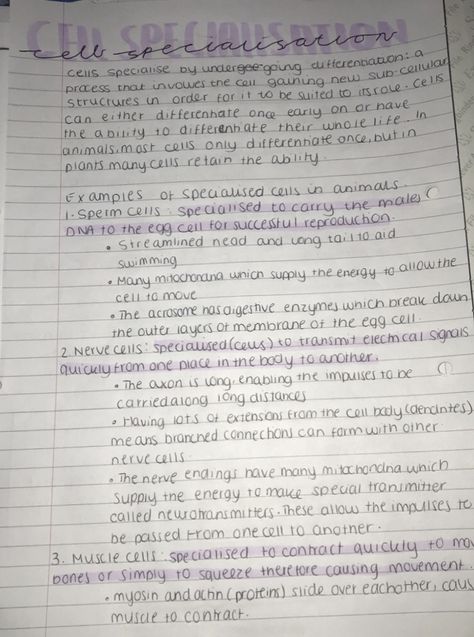 CELL SPECIALISATION
cell specialisation
cells specialise by undergoe going differentiation: a
process that involves the cell gaining new sub-cellular
structures in order for it to be suited to its role. Cells
can either differentiate once early on or have
the ability to differentiate their whole life. In
animals, most cells only differentiate once, but in
plants many cells retain the ability.
Examples of specialised cells in animals
1. Sperm cells: specialised to carry the male's
DNA to the egg cell for successful reproduction.
• Streamlined head and long tail to aid
swimming
• Many mitochondria which supply the energy to allow the
cell to move
• The acrosome has digestive enzymes which break down
the outer layers of membrane of the egg cell.
2. Nerve cells: specialised (cells) to transmit electrical signals
quickly from one place in the body to another.
• The axon is long, enabling the impulses to be
carried along long distances
• Having lots of extensions from the cell body (dendrites)
means branched connections can form with other
nerve cells.
• The nerve endings have many mitochondria which
supply the energy to make special transmitter
called neurotransmitters. These allow the impulses to
be passed from one cell to another.
3. Muscle cells: specialised to contract quickly to mov
bones or simply to squeeze therefore causing movement.
• myosin and actin (proteins) slide over eachother, caus
muscle to contract.